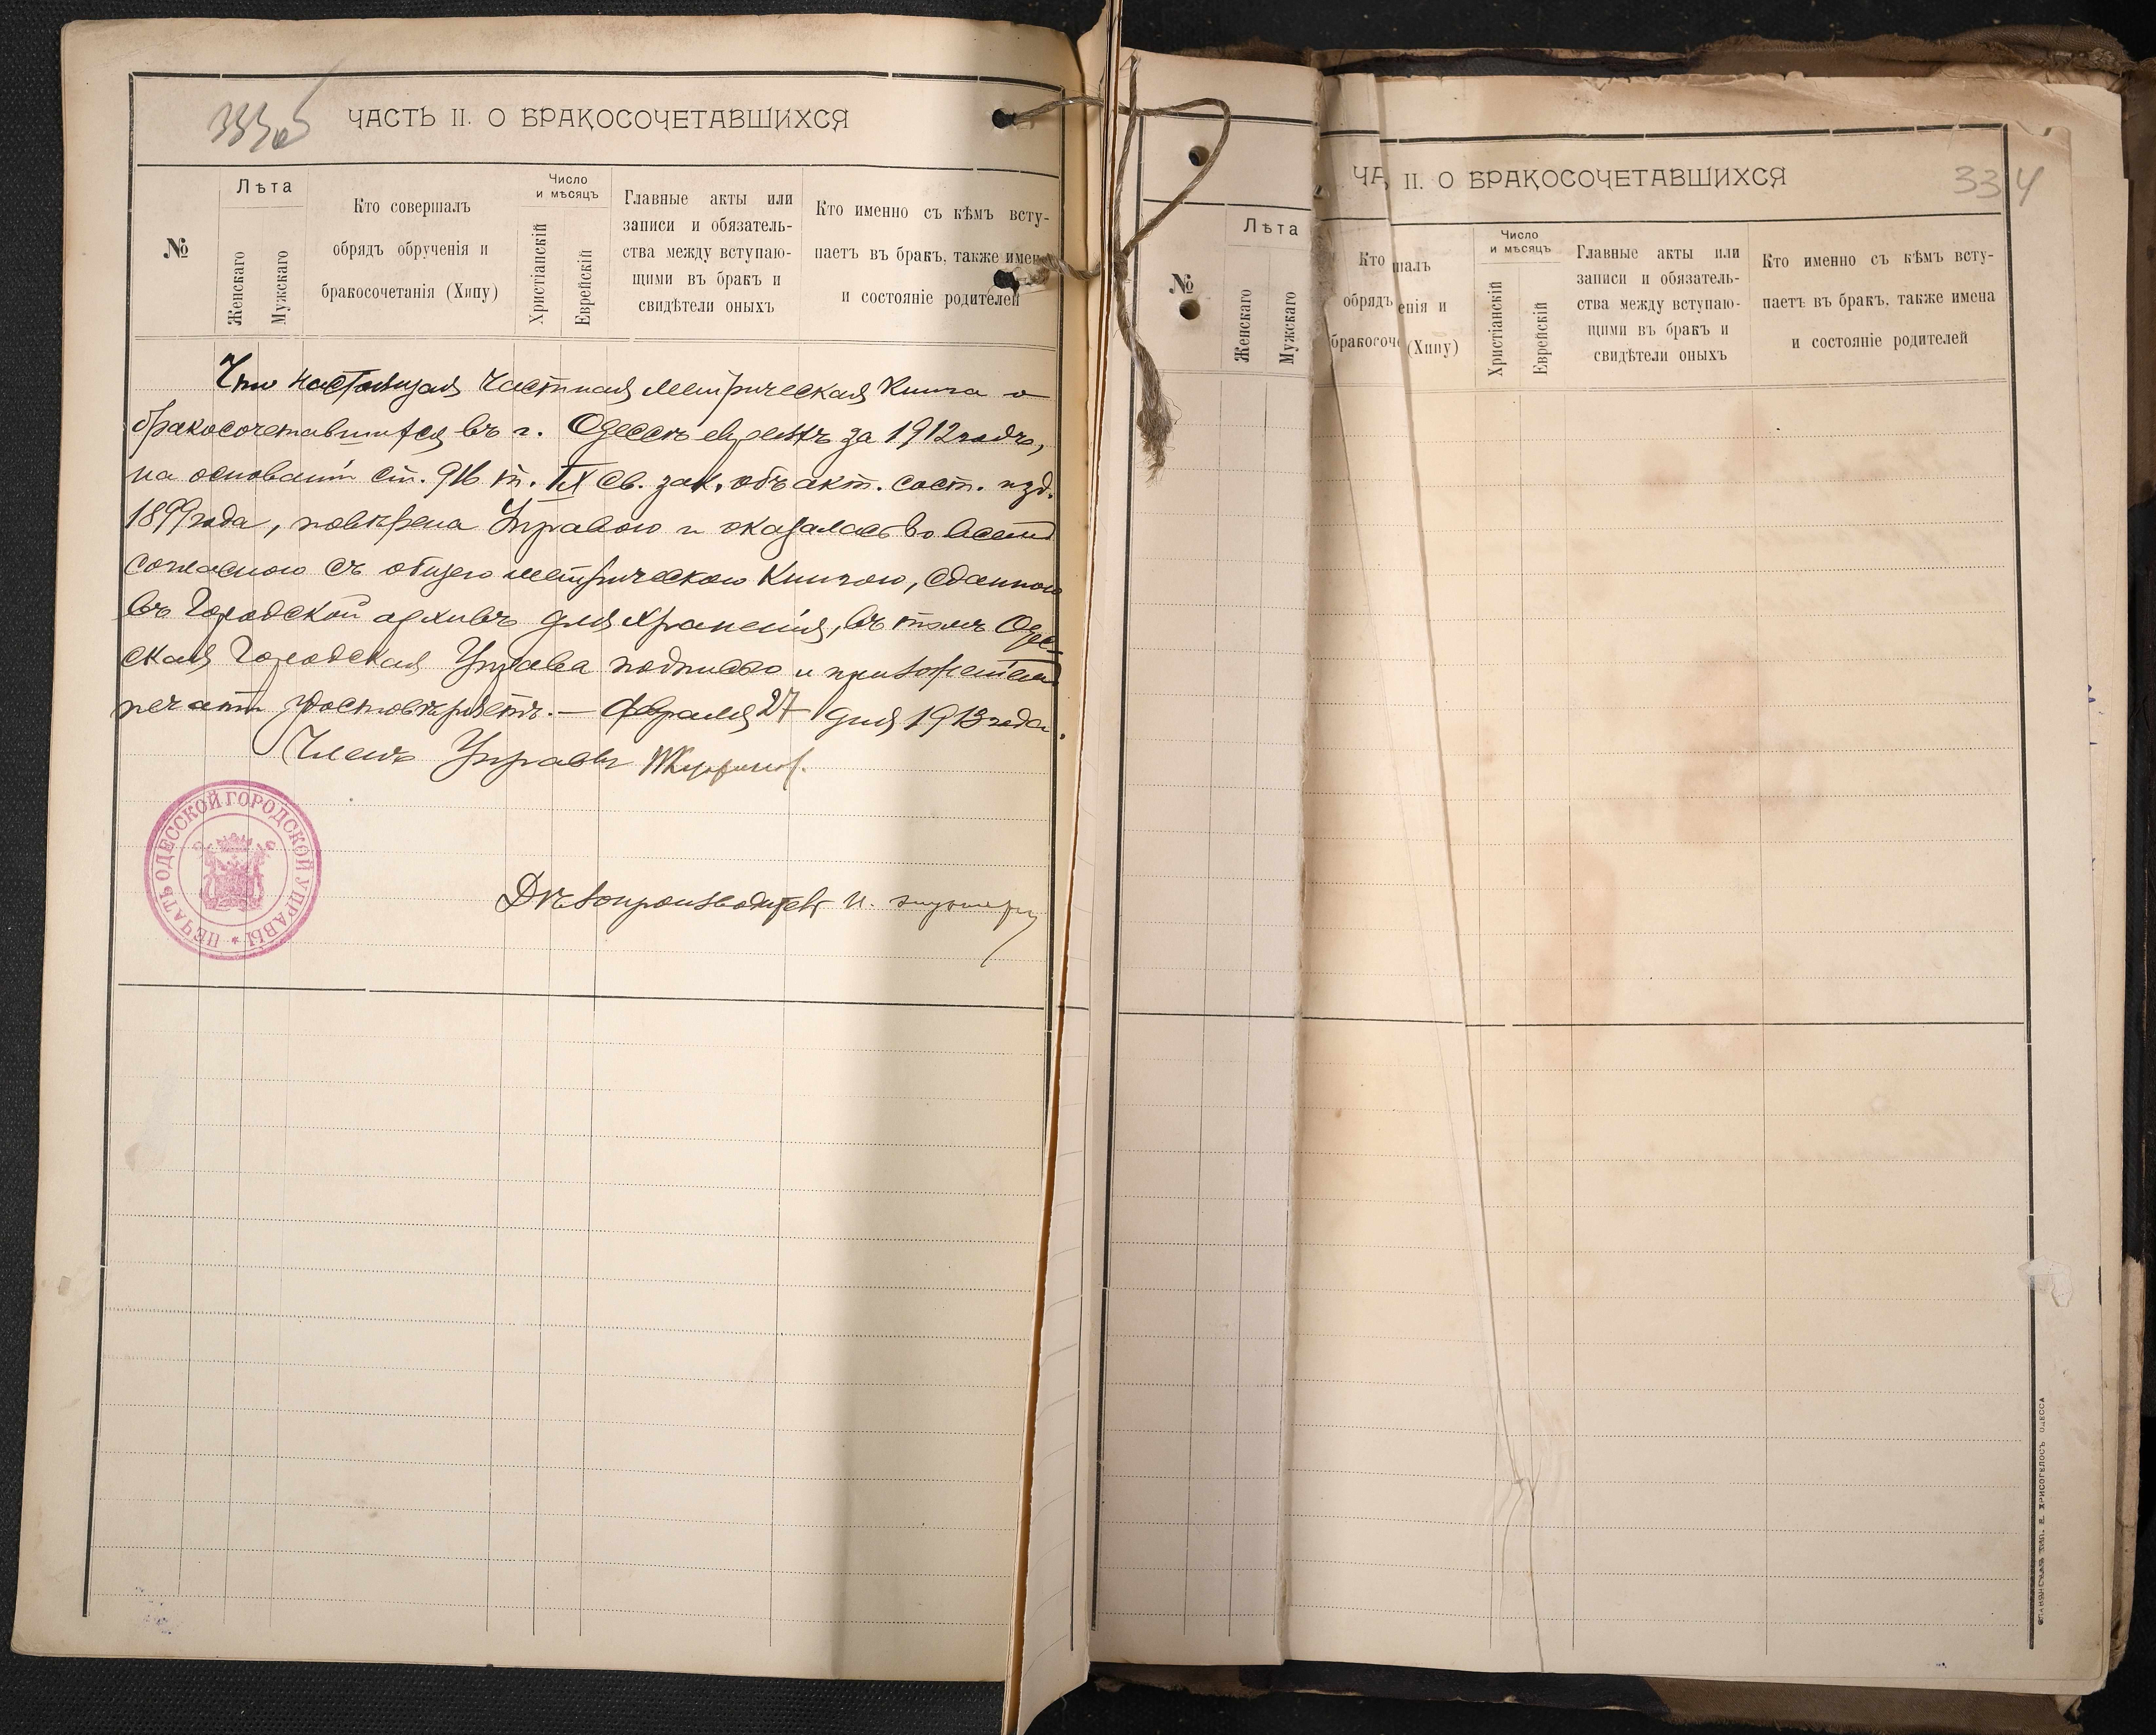 333об
ЧАСТЬ II. О БРАКОСОЧЕТАВШИХСЯ
№
Лѣта
Женскаго
Мужскаго
Кто совершалъ
обрядъ обрученія и
бракосочетанія (Хипу)
Число
и мѣсяцъ
Христіанскій
Еврейскій
Главные акты или
записи и обязатель-
ства между вступаю-
щими въ бракъ и
свидѣтели оныхъ
Кто именно съ кѣмъ всту-
паетъ въ бракъ, также имена
и состояніе родителей
Что настоящая частная метрическая книга о
бракосочетавшихся въ г. Одессѣ евреяхъ за 1912 годъ,
на основаніи ст. 916 т. IX Св. зак. объ акт. сост. изд.
1899 года, повѣрена Управою и оказалась во всемъ
согласною съ общею метрическою книгою, сданною
въ Городской архивъ для храненія, въ томъ Одес-
ская Городская Управа подписью и приложеніемъ
печати удостовѣряетъ. — Февраля 27 дня 1913 года.
Членъ Управы
ПЕЧАТЬ ОДЕССКОЙ ГОРОДСКОЙ УПРАВЫ
Дѣлопроизводитель И.
ЧА II. О БРАКОСОЧЕТАВШИХСЯ
334
№
Лѣта
Женскаго
Мужскаго
Кто шалъ
обрядъ енія и
бракосоче (Хипу)
Число
и мѣсяцъ
Христіанскій
Еврейскій
Главные акты или
записи и обязатель-
ства между вступаю-
щими въ бракъ и
свидѣтели оныхъ
Кто именно съ кѣмъ всту-
паетъ въ бракъ, также имена
и состояніе родителей
ТИП. Е. ХРИСОГЕЛОСЪ ОДЕССА